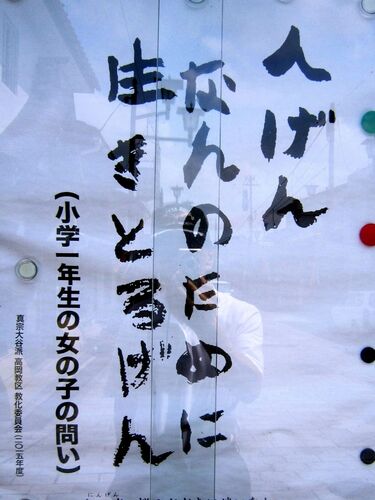 人げん
なんのために
生きとるげん
(小学一年生の女の子の問い)
真宗大谷派 高岡教区 教化委員会(二〇一五年度)
にんげん